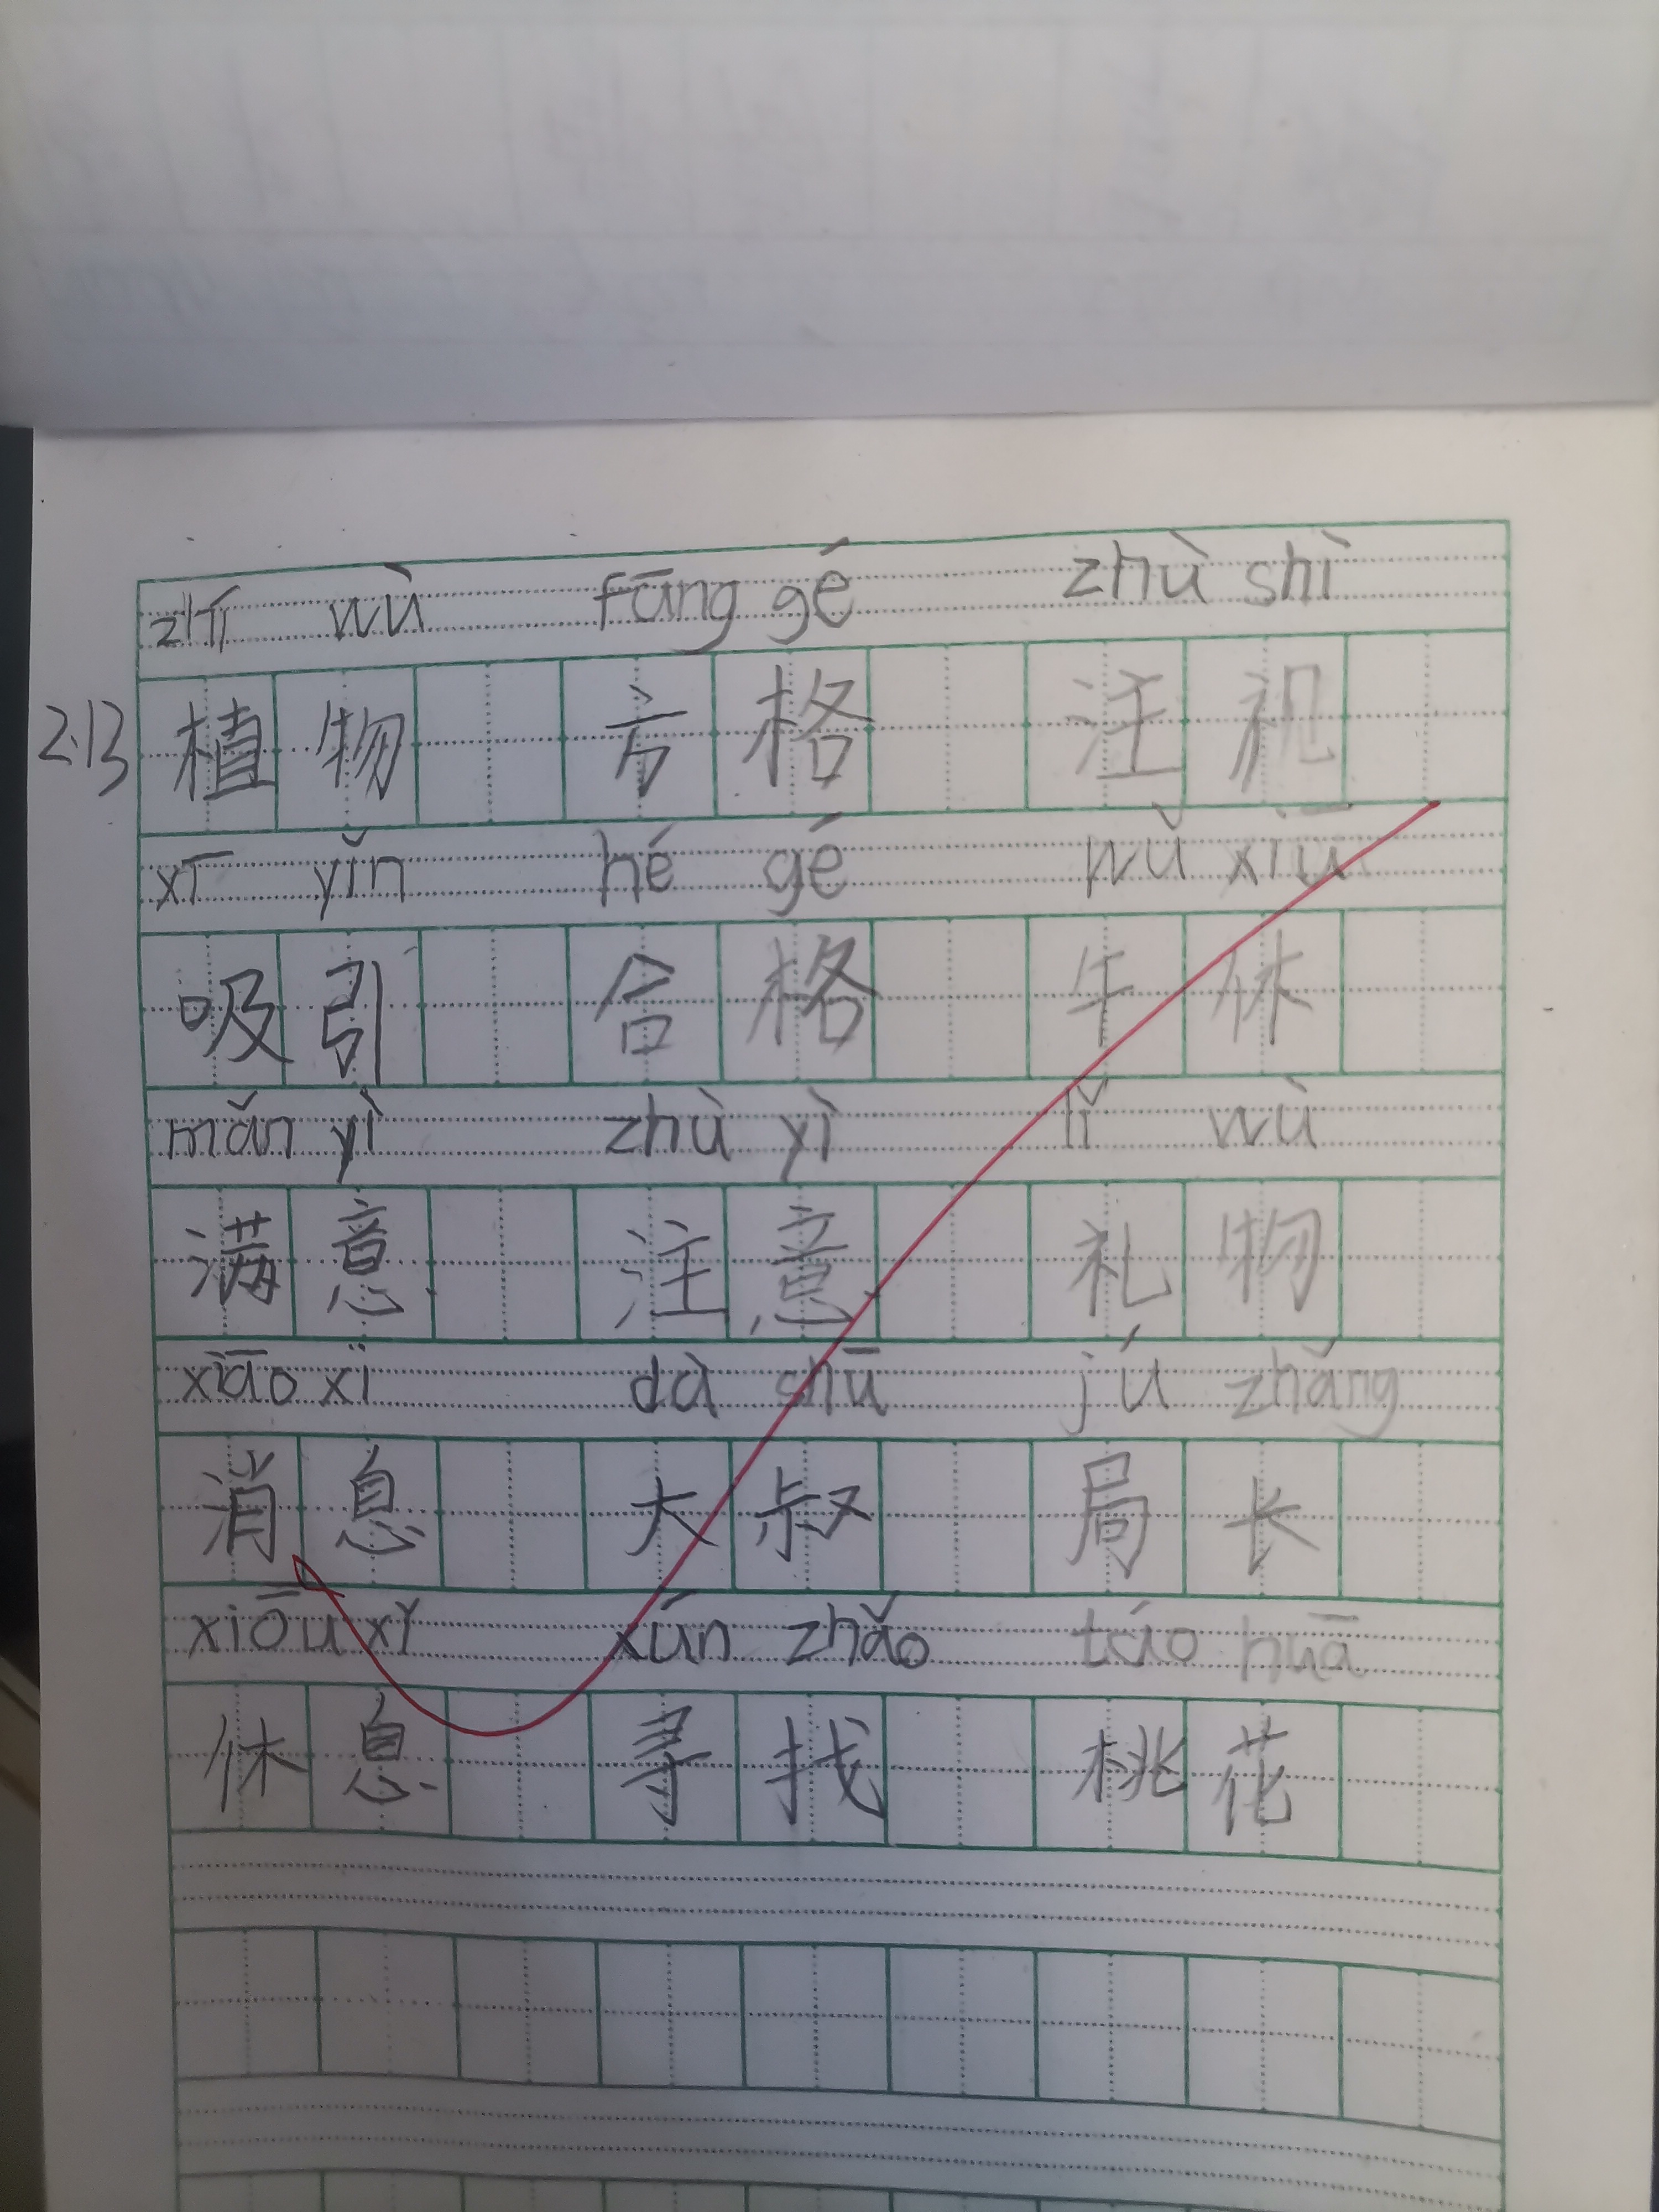 zhī wù fāng gé zhù shì
2.13 植物 方格 注视
xī yǐn hé gé wǔ xiū
吸引 合格 午休
mǎn yì zhù yì lǐ wù
满意 注意 礼物
xiāo xi dà shū jú zhǎng
消息 大叔 局长
xiōu xǐ xún zhǎo táo huā
休息 寻找 桃花